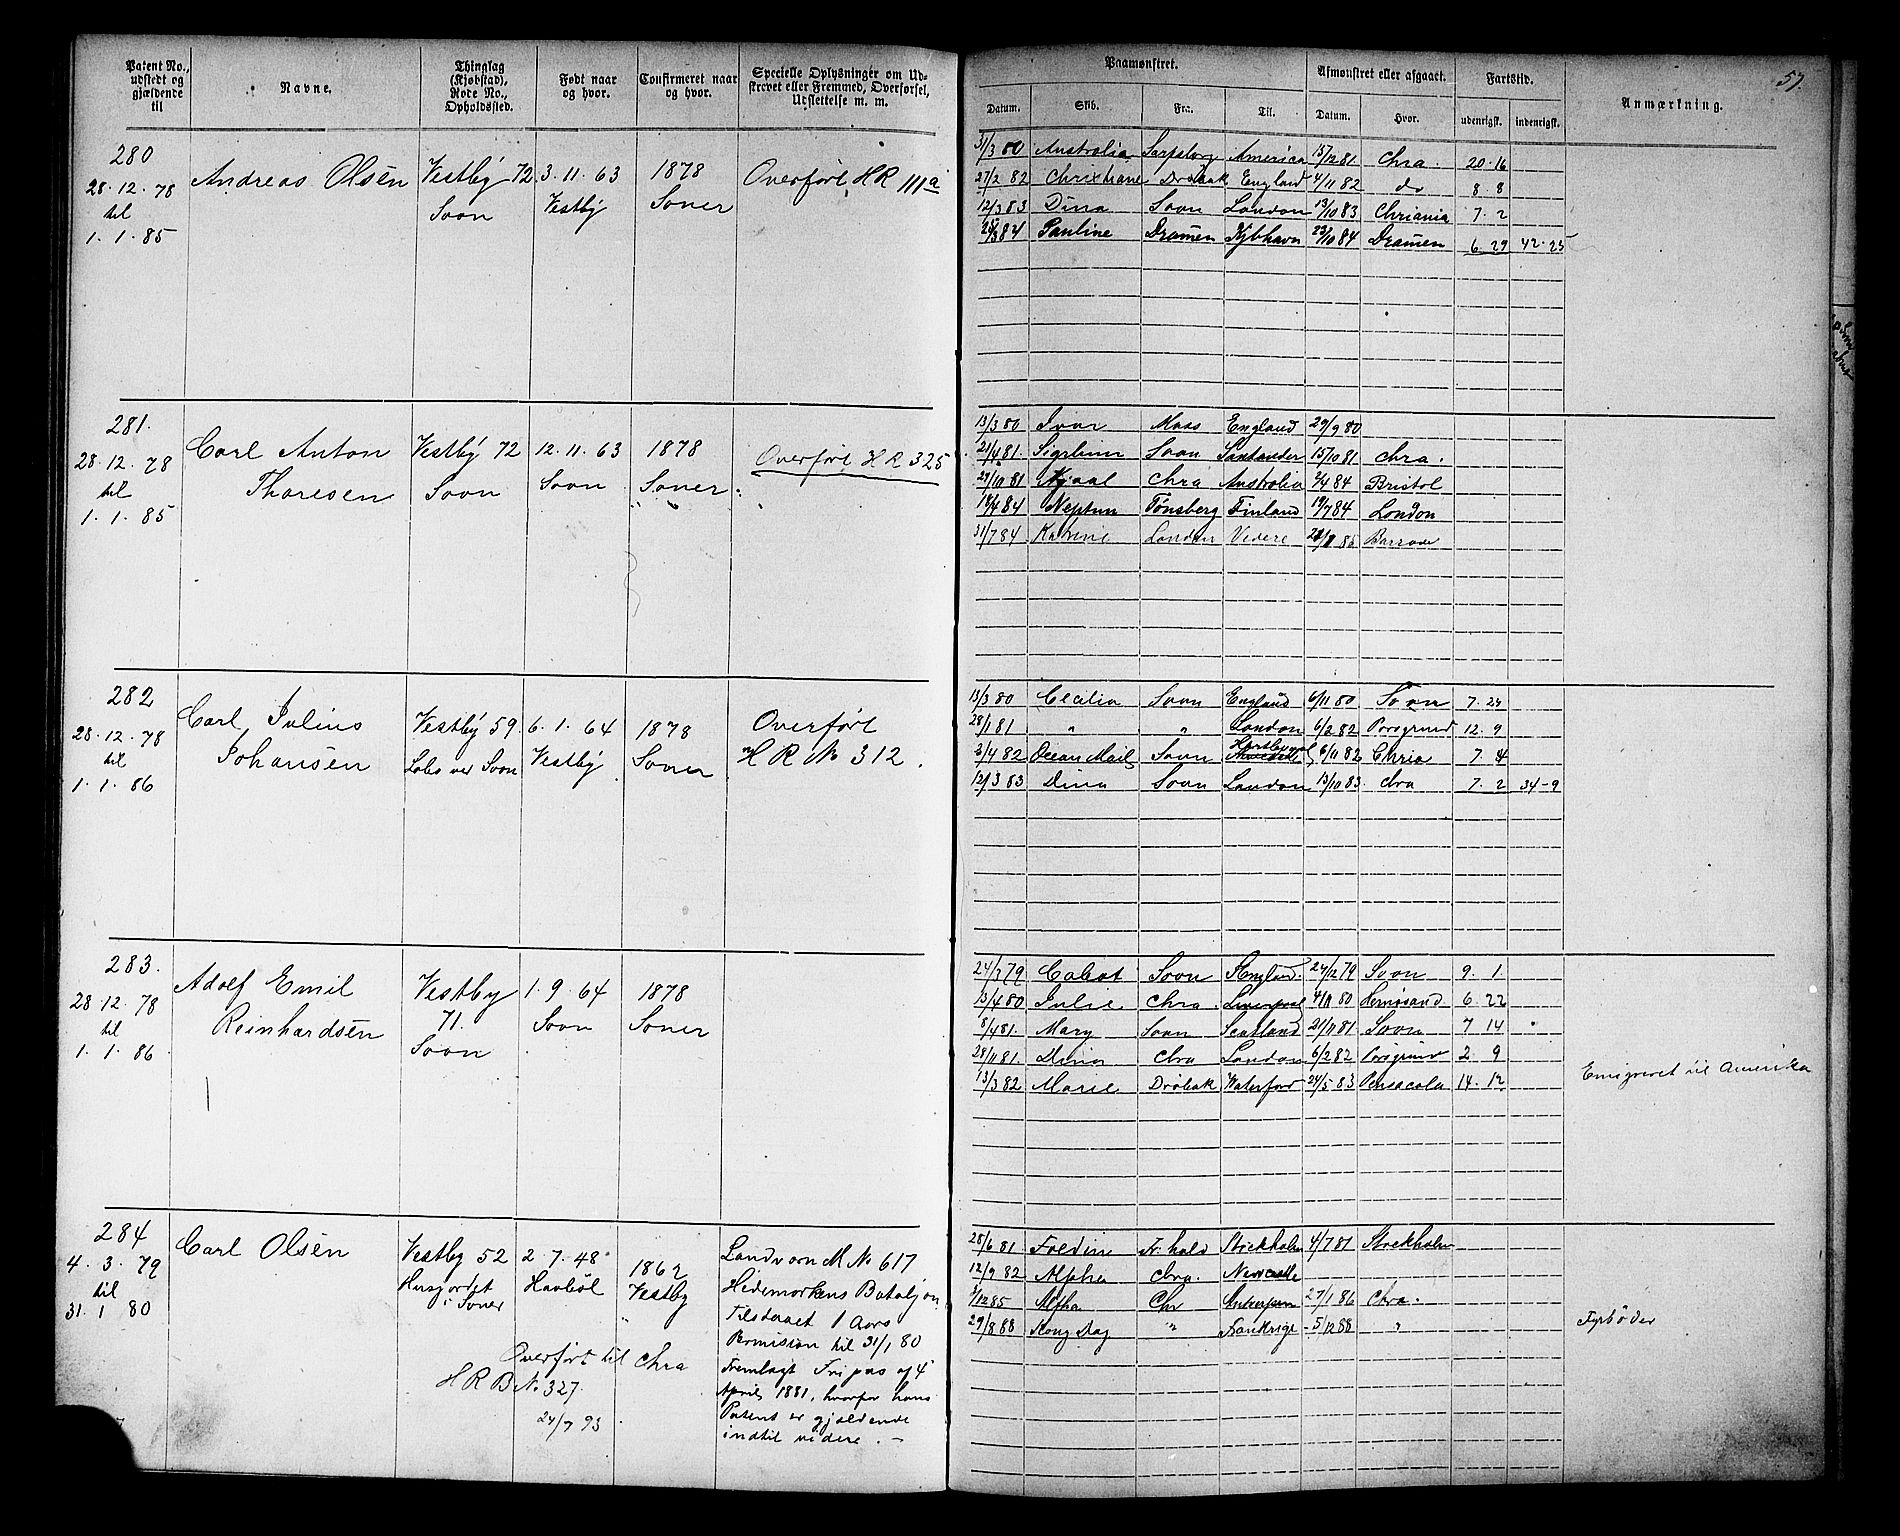 Patent No., udstedt og gjældende til
Navne.
Thinglag (Kjøbstad), Rode No., Opholdssted.
Født naar og hvor.
Confirmeret naar og hvor.
Specielle Oplysninger om Udskrevet eller Fremmed, Overførsel, Udslettelse m. m.
280
28.12.78
til
1.1.85
Andreas Olsen
Vestby 72
Soon
3.11.63
Vestby
1878
Soner
Overført HR 111a
281.
28.12.78
til
1.1.85
Carl Anton
Thoresen
Vestby 72
Soon
12.11.63
Soon
1878
Soner
Overført HR 325
282
28.12.78
til
1.1.86
Carl Julius
Johansen
Vestby 59
Soon
6.1.64
Vestby
1878
Soner
Overført
HR No 312.
283.
28.12.78
til
1.1.86
Adolf Emil
Reinhardsen
Vestby
71.
Soon
1.9.64
Soon
1878
Soner
284
4.3.79
til
31.1.80
Carl Olsen
Vestby 52
i Soner
2.7.48
Havböl
1862
Vestby
Overført til Chra
HRB No. 327.
24/7 93
Landvorn M No 617
Hedemarkens Bataljon
Tilstaaet 1 Aars
Permission til 31/1 80
Fremlagt Fripas af 4
April 1881, hvorfor hans
Patent er gjældende
indtil videre. -
57.
Paamønstret.
Afmønstret eller afgaaet.
Fartstid.
Anmærkning.
Datum.
Skib.
Fra.
Til.
Datum.
Hvor.
udenrigsk.
indenrigsk.
31/3 80 Australia Sarpsborg America 15/12 81 Chra. 20.16
27/2 82 Christiane Drøbak England 4/11 82 do 8.8
12/3 83 Dina Soon London 13/10 83 Chriania 7.2
84 Pauline Dramen Kjbhavn 23/10 84 Dramen 6.29 42.25
13/3 80 Ivar Moss England 29/9 80
21/4 81. Soon Santander 15/10 81 Chra.
29/10 81 Chra Australia 84 Bristol
18/4 84 Neptun Tönsberg Finland 19/7 84 London
31/7 84 London Videre 85
13/3 80 Cecilia Soon England 6/11 80 Soon 7.23
28/1 81 " " London 6/2 82 Porsgrund 12.9
3/4 82 Ocean Soon 6/11 82 Chria 7.4
12/3 83 Dina Soon London 13/10 83. Chra 7.2 34-9
79 Cabot Soon England 24/12 79 Soon 9.1.
13/4 80 Julie Chra. Liverpool 80 Hernøsand 6.22
8/4 81. Mary Soon Scotland 21/11 81 Soon 7 14
28/11 81. Dina Chra London 6/2 82 Porsgrund 2 9
13/3 82 Marie Drøbak Waterford 24/5 83 Pensacola 14.12
Emigreret til Amerika
25/6 81 Fr.hald Stockholm 4/7 81 Stockholm
12/9 82 Alpha Chra. Newcastle
12 85 Alpha Chr Antwerpen 27/1 86 Chra.
29/8 88 Kong Dag " Frankrige 5/12 88 "
Fyrbøder